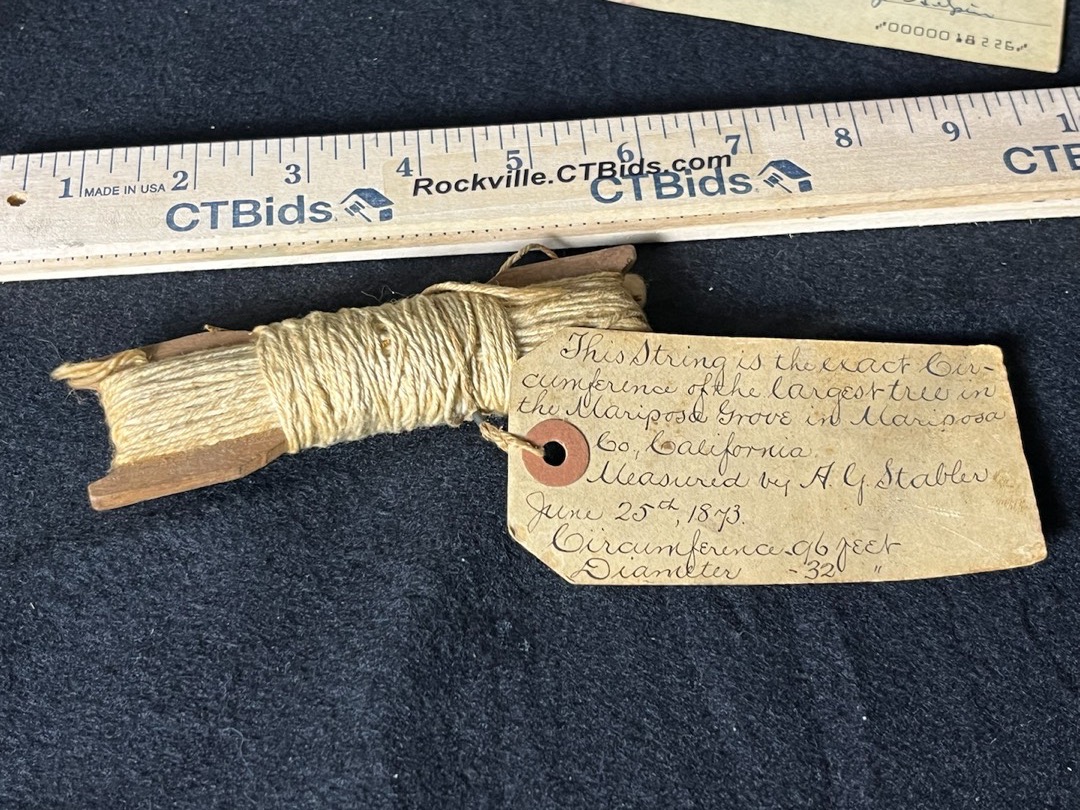 "00000 18226"
1 MADE IN USA 2 3 4 5 6 7 8 9 1
Rockville.CTBids.com
CTBids CTBids CTB
This String is the exact Cir-
cumference of the largest tree in
the Mariposa Grove in Mariposa
Co, California.
Measured by A. G. Stabler
June 25th, 1873.
Circumference 96 feet
Diameter - 32 "